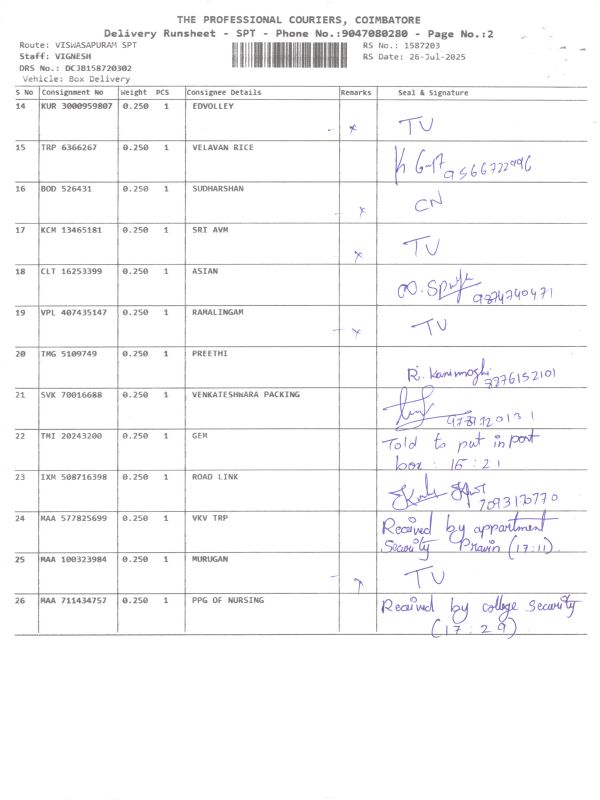 THE PROFESSIONAL COURIERS, COIMBATORE
Delivery Runsheet - SPT - Phone No.:9047080280 - Page No.:2
Route: VISWASAPURAM SPT RS No.: 1587203
Staff: VIGNESH RS Date: 26-Jul-2025
DRS No.: DCJB158720302
Vehicle: Box Delivery
S No Consignment No Weight PCS Consignee Details Remarks Seal & Signature
14 KUR 3000959807 0.250 1 EDVOLLEY x TV
15 TRP 6366267 0.250 1 VELAVAN RICE 9566722996
16 BOD 526431 0.250 1 SUDHARSHAN x CN
17 KCM 13465181 0.250 1 SRI AVM x TV
18 CLT 16253399 0.250 1 ASIAN 9874740471
19 VPL 407435147 0.250 1 RAMALINGAM x TV
20 TMG 5109749 0.250 1 PREETHI R. Kanimozhi 9876152101
21 SVK 70016688 0.250 1 VENKATESHWARA PACKING
22 TMI 20243200 0.250 1 GEM Told to put in post
box : 15 : 21
23 IXM 508716398 0.250 1 ROAD LINK 7093170770
24 MAA 577825699 0.250 1 VKV TRP Received by appartment
Security Pravin (17:11)
25 MAA 100323984 0.250 1 MURUGAN TV
26 MAA 711434757 0.250 1 PPG OF NURSING Received by college security
(17 : 29)